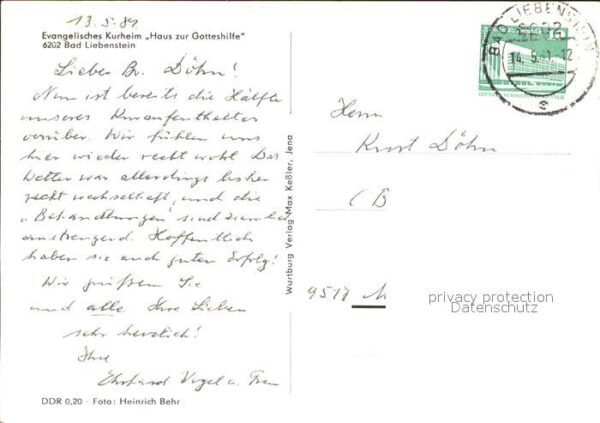 13.5.81
Evangelisches Kurheim „Haus zur Gotteshilfe"
6202 Bad Liebenstein
Lieber Br. Döhn!
Nun ist bereits die Hälfte
unseres Kuraufenthaltes
vorüber. Wir fühlen uns
hier wieder recht wohl. Das
Wetter war allerdings bisher
recht wechselhaft, und die
„Behandlungen" sind ziemlich
anstrengend. Hoffentlich
haben sie auch guten Erfolg!
Wir grüßen Sie
und alle Ihre Lieben
sehr herzlich!
Ihre
Ehrhard Vogel u. Frau
DDR 0,20 · Foto: Heinrich Behr
Wartburg Verlag Max Keßler, Jena
BAD LIEBENSTEIN
14.5.81-12
e
Herrn
Kurt Döhn
(B
9517
privacy protection
Datenschutz